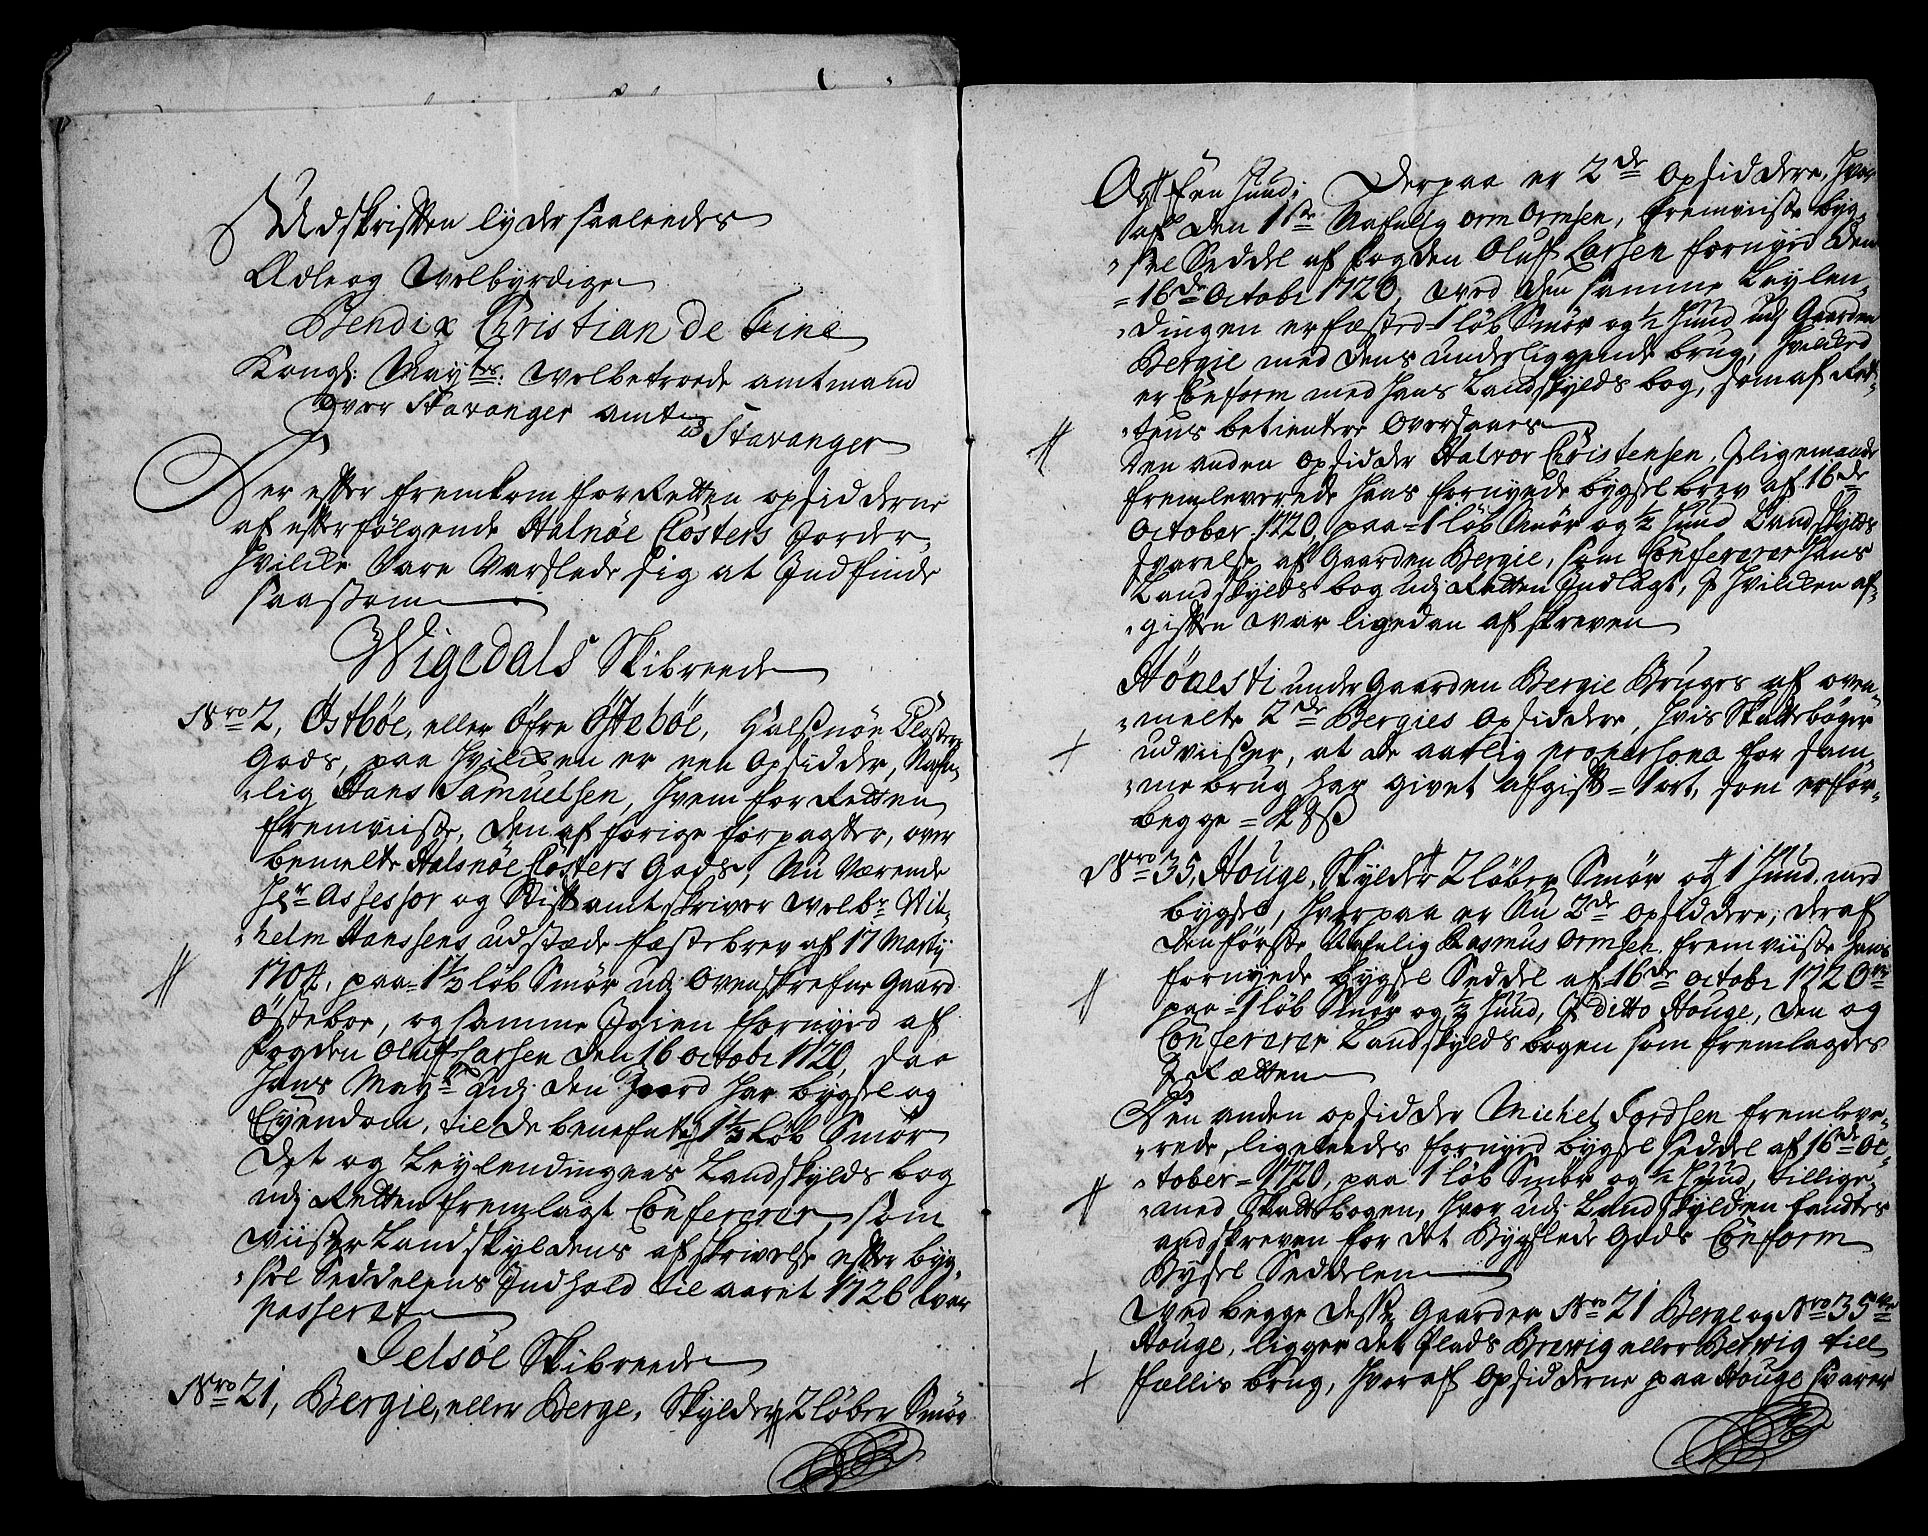 Udskriften lyder saaleedes
Ædle og Velbyrdige
Bendix Christian de Fine
Kongl: Mayts: velbetroede amtmand
over Stavanger amt
Stavanger
Der efter fremkom for Retten opsidderne
af efterfølgende Halnøe Closters Jorder,
hvilke vare varslede sig at Indfinde
saasom
Wigedals Skibreede
Nro 2, Östböe, eller Öfre Östeböe, Halsnöe Closters
Gods, paa hvilken er een opsidder, Nafn-
lig Hans Samuelsen, hvem for Retten
fremviiste, den af forige forpagter, over
bemelte Halsnöe Closters Gods, Nu værende
Hr Assessor og Stiftamtskriver velbr Wil-
helm Hanssens udstæde fæstebrev af 17 Martij
1704, paa 1½ løb Smör udj ovenskrefne Gaard
Östeboe, og samme Igien fornyed af
fogden Oluf Larsen den 16 octobr 1720, saa
hans Mayt Udj den Jord har bygsel og
Eyendom, til de benefnte 1½ løb Smör
det og Leylendingens Landskylds bog
udj Retten fremlagt Confererer, som
viiser Landskyldens afskrivelse efter byg-
sel Seddelens Indhold til aaret 1726 var
passeret
Jelsöe Skibreede
Nro 21, Bergie, eller Berge, Skylder 2 løber Smör
Og een huud; Derpaa er 2de opsiddere, hvor
af den 1ste Nafnlig Orm Ormsen, fremviiste byg-
sel Seddel af fogden Oluff Larsen fornyed den
16de Octobr 1720, ved den samme Leylen-
dingen er fæsted 1 løb Smör og ½ huud udj Gaarden
Bergie med dens underliggende brug, hvilked
er Conform med hans Landskylds bog, som af Ret-
tens betientere oversaaes
Den anden opsidder Halvor Christensen, Iligemaade
fremleverede hans fornyede bygsel brev af 16de
October 1720, paa 1 løb Smör og ½ huud Landskylds
svarelse af Gaarden Bergie, som Confererer hans
Landskylds bog udj Retten Indlagt, I hvilken af-
giften var ligedan afskreven
Höaesti under Gaarden Bergie Bruges af oven-
melte 2de Bergies opsiddere, hvis Skattebøger
udviiser, at de aarlig pro persona for sam-
me brug har givet afgift 1 ort, som er for
begge
Nro 35, Houge, Skylder 2 løber Smör og 1 huud med
bygsel, hvorpaa er Nu 2de opsiddere; deraf
den første Nafnlig Rasmus Ormsen, fremviiste hans
fornyede bygsel Seddel af 16de octobr 1720
paa 1 løb Smör og ½ huud, I ditto Houge, den og
Confererer Landskylds bogen som fremlagdes
I Retten
Den anden opsidder Michel Fordsen fremleve-
rede ligeleedes fornyed bygsel seddel af 16de Oc-
tober 1720, paa 1 løb Smör og ½ huud, tillige-
med Skatte bogen, hvor udj Landskylden fandtes
andskreven for det Bygslede Gods Conform
Bygsel Seddelen
Ved begge disse Gaarder Nro 21 Berge og Nro 35
Houge, ligger det plads Brewig eller Berwig till
fællis brug, hvoraf opsidderne paa Houge svarer